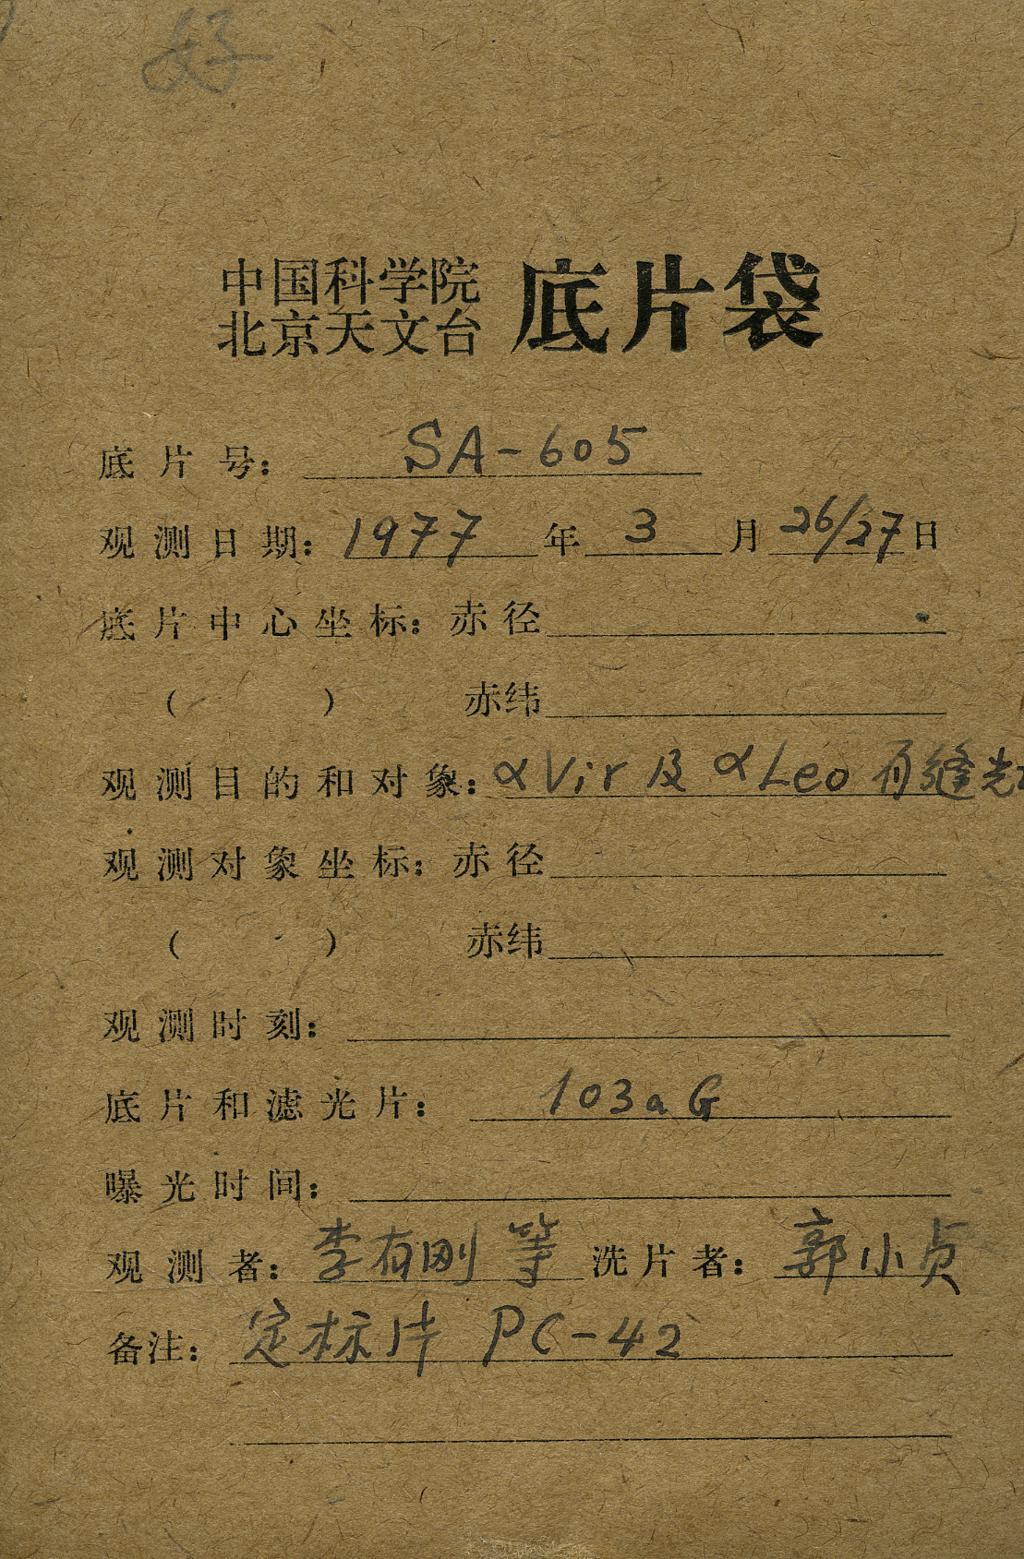 好
中国科学院
北京天文台 底片袋
底片号: SA-605
观测日期: 1977 年 3 月 26/27 日
底片中心坐标: 赤径
( ) 赤纬
观测目的和对象: αVir 及 αLeo 有缝光
观测对象坐标: 赤径
( ) 赤纬
观测时刻:
底片和滤光片: 103aG
曝光时间:
观测者: 李有刚 等 洗片者: 郭小贞
备注: 定标片 PC-42